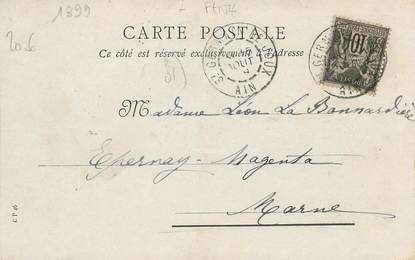 1899
CARTE POSTALE
Ce côté est réservé exclusivement à l'adresse
ST GERMAIN
AOUT
AIN
10
Madame Léon La Bonnardière
Epernay-Magenta
Marne